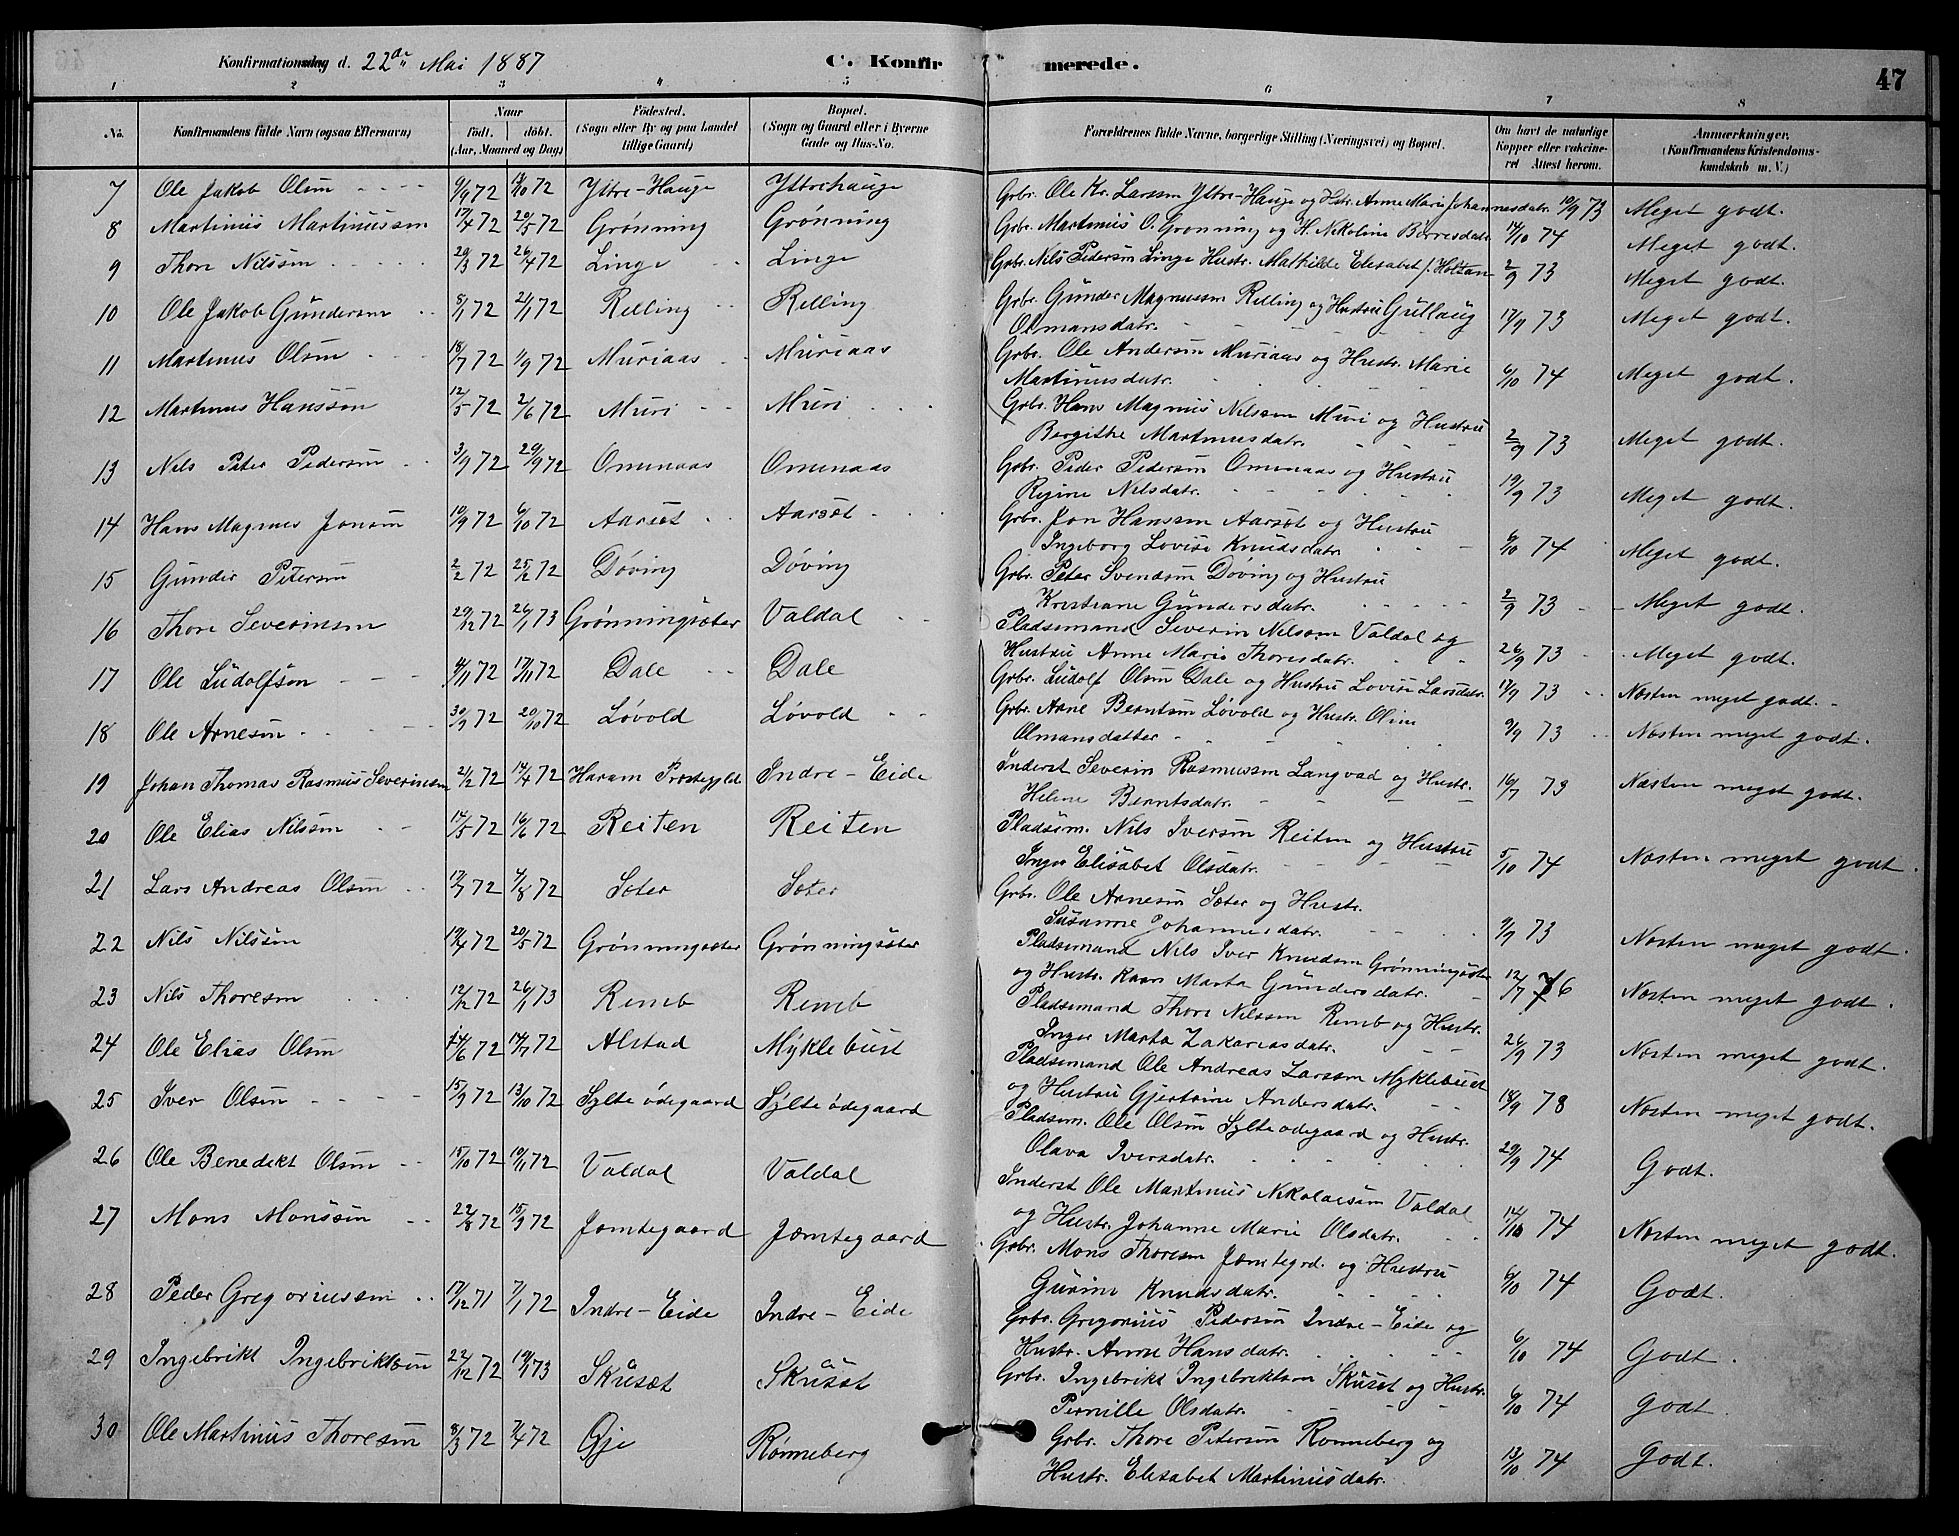 Konfirmationsdag d. 22de Mai 1887 C. Konfirmerede. 47
1 2 3 4 5 6 7 8
No. Konfirmandens fulde Navn (ogsaa Efternavn) Naar födt. döbt. (Aar, Maaned og Dag) Födested. (Sogn eller By og paa Landet tillige Gaard) Bopæl. (Sogn og Gaard eller i Byerne Gade og Hus-No. Forældrenes fulde Navne, borgerlige Stilling (Næringsvei) og Bopæl. Om havt de naturlige Kopper eller vakcineret. Attest herom. Anmærkninger. (Konfirmandens Kristendomskundskab m. V.)
7 Ole Jakob Olsen 9/9 72 13/10 72 Yttre-Hauge Yttrehauge Grbr. Ole Kr. Larsen Yttre-Hauge og Hstr. Anne Marie Johannesdatr. 10/9 73 Meget godt.
8 Martinus Martinussen 17/4 72 20/5 72 Grønning Grønning Grbr. Martinus O. Grønning og H. Nikoline Borresdatr. 14/10 74 Meget godt.
9 Thore Nilssen 20/3 72 26/4 72 Linge Linge Grbr. Nils Pedersen Linge Hustr. Mathilde Elisabet f. Holtan 2/9 73 Meget godt.
10 Ole Jakob Gundersen 8/1 72 21/1 72 Relling Relling Grbr. Gunder Magnussen Relling og Hustru Gullaug
Olmansdatr. 17/9 73 Meget godt.
11 Martinus Olsen 18/7 72 1/9 72 Muriaas Muriaas Grbr. Ole Andersen Muriaas og Hustr. Marie
Martinusdatr. 6/10 74 Meget godt.
12 Martinus Hanssen 12/5 72 2/6 72 Muri Muri Grbr. Hans Magnus Nilssen Muri og Hustru
Bergithe Martinusdatr. 2/9 73 Meget godt.
13 Nils Peter Pedersen 3/9 72 29/9 72 Omenaas Omenaas Grbr. Peder Pedersen Omenaas og Hustru
Regine Nilsdatr. 19/9 73 Meget godt.
14 Hans Magnus Jonsen 10/9 72 6/10 72 Aarsæt Aarsæt Grbr. Jon Hanssen Aarsæt og Hustru
Ingeborg Lovise Knudsdatr. 6/10 74 Meget godt.
15 Gunder Petersen 2/2 72 25/2 72 Døving Døving Grbr. Peter Svendsen Døving og Hustru
Kristiane Gundersdatr. 2/9 73 Meget godt.
16 Thore Severinsen 29/12 72 26/1 73 Grønningsæter Valdal Pladsemand Severin Nilssen Valdal og
Hustru Anne Marie Thoresdatr. 26/9 73 Meget godt.
17 Ole Ludolfsen 4/11 72 17/11 72 Dale Dale Grbr. Ludolf Olsen Dale og Hustru Lovise Larsdatr. 17/9 73 Næsten meget godt.
18 Ole Arnesen 30/9 72 20/10 72 Løvold Løvold Grbr. Arne Berntsen Løvold og Hustr. Oline
Olmansdatter 9/9 73 Næsten meget godt.
19 Johan Thomas Rasmus Severinsen 2/2 72 14/4 72 Haram Præstegjeld Indre-Eide Inderst Severin Rasmussen Langvad og Hustr.
Heline Berntsdatr. 16/7 73 Næsten meget godt.
20 Ole Elias Nilssen 17/5 72 16/6 72 Reiten Reiten Pladsem. Nils Iversen Reiten og Hustru
Inger Elisabet Olsdatr. 5/10 74 Næsten meget godt.
21 Lars Andreas Olsen 17/7 72 4/8 72 Sæter Sæter Grbr. Ole Arnesen Sæter og Hustr.
Susanne Johannesdatr. 9/9 73 Næsten meget godt.
22 Nils Nilssen 19/4 72 20/5 72 Grønningsæter Grønningsæter Pladsemand Nils Iver Knudsen Grønningsæter
og Hustr. Karn Marta Gundersdatr. 12/7 76 Næsten meget godt.
23 Nils Thoresen 12/12 72 26/1 73 Remb Remb Pladsemand Thore Nilssen Remb og Hustr.
Inger Marta Zakariasdatr. 26/9 73 Næsten meget godt.
24 Ole Elias Olsen 14/6 72 14/7 72 Alstad Myklebust Pladsemand Ole Andreas Larssen Myklebust
og Hustru Gjertine Andersdatr. 18/9 78 Næsten meget godt.
25 Iver Olsen 15/9 72 13/10 72 Sylte ødegaard Sylte ødegaard Pladsem. Ole Olsen Sylte ødegaard og Hustr.
Olava Iversdatr. 29/9 74 Godt.
26 Ole Benedikt Olsen 15/10 72 10/11 72 Valdal Valdal Inderst Ole Martinus Nikolaisen Valdal
og Hustr. Johanne Marie Olsdatr. 14/10 74 Næsten meget godt.
27 Mons Monssen 22/8 72 15/9 72 Jemtegaard Jemtegaard Grbr. Mons Thoresen Jemtegrd. og Hustru
Gurine Knudsdatr. 6/10 74 Godt.
28 Peder Gregoriussen 17/12 71 7/1 72 Indre-Eide Indre-Eide Grbr. Gregorius Pedersen Indre-Eide og
Hustr. Anne Hansdatr. 6/10 74 Godt.
29 Ingebrikt Ingebriktsen 22/12 72 19/1 73 Skusæt Skusæt Grbr. Ingebrikt Ingebriktsen Skusæt og Hustr.
Pernille Olsdatr. 6/10 74 Godt.
30 Ole Martinus Thoresen 8/3 72 7/4 72 Øje Rønneberg Grbr. Thore Petersen Rønneberg og
Hustr. Elisabet Martinusdatr. 13/10 74 Godt.